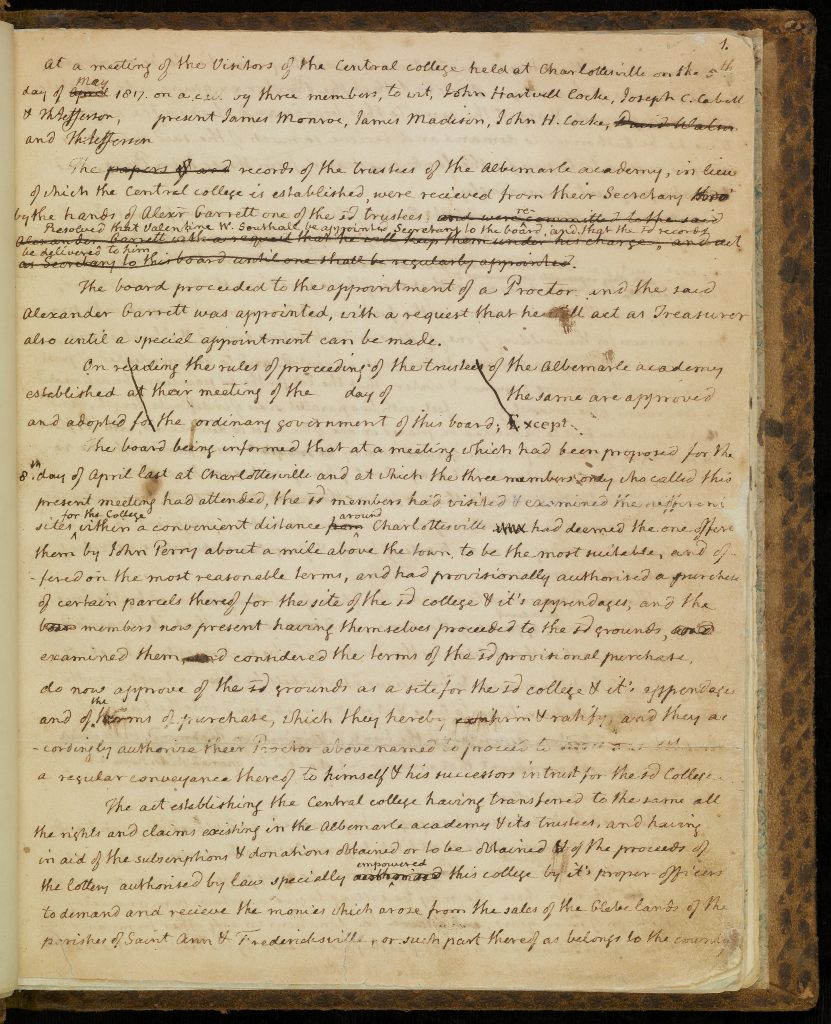 1.
At a meeting of the Visitors of the Central college held at Charlottesville on the 5th
May
day of April 1817. on a call by three members, to wit, John Hartwell Cocke, Joseph C. Cabell
& Th: Jefferson, present James Monroe, James Madison, John H. Cocke, David Watson
and Th: Jefferson
The papers of and records of the trustees of the Albemarle academy, in lieu
of which the Central college is established, were recieved from their Secretary
by the hands of Alexr Garrett one of the sd trustees. and were re-committed to the said
Resolved that Valentine W. Southall be appointed Secretary to the board, and that the sd records
Alexander Garrett with a request that he will keep them under his charge, and act
be delivered to him
as Secretary to this board until one shall be regularly appointed.
The board proceeded to the appointment of a Proctor and the said
Alexander Garrett was appointed, with a request that he will act as Treasurer
also until a special appointment can be made.
On reading the rules of proceeding of the trustees of the Albemarle academy
established at their meeting of the day of the same are approved
and adopted for the ordinary government of this board; Except
The board being informed that at a meeting which had been proposed for the
8th day of April last at Charlottesville and at which the three members only who called this
present meeting had attended, the sd members had visited & examined the different
for the College around
sites within a convenient distance from Charlottesville had deemed the one offere
them by John Perry about a mile above the town, to be the most suitable, and of-
-fered on the most reasonable terms, and had provisionally authorised a purchase
of certain parcels thereof for the site of the sd college & it's appendages, and the
members now present having themselves proceeded to the sd grounds,
examined them, and considered the terms of the sd provisional purchase,
do now approve of the sd grounds as a site for the sd college & it's appendages
the
and of terms of purchase, which they hereby confirm & ratify, and they ac
-cordingly authorize their Proctor above named to proceed to
a regular conveyance thereof to himself & his successors in trust for the sd College.
The act establishing the Central college having transferred to the same all
the rights and claims existing in the Albemarle academy & its trustees, and having
in aid of the subscriptions & donations obtained or to be obtained & of the proceeds of
empowered
the lottery authorised by law specially authorised this college by it's proper officers
to demand and recieve the monies which arose from the sales of the Glebe lands of the
parishes of Saint Ann & Fredericksville, or such part thereof as belongs to the county